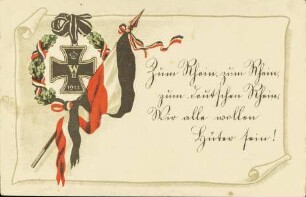 W
1914
Zum Rhein, zum Rhein,
zum deutschen Rhein,
Wir alle wollen
Hüter sein!